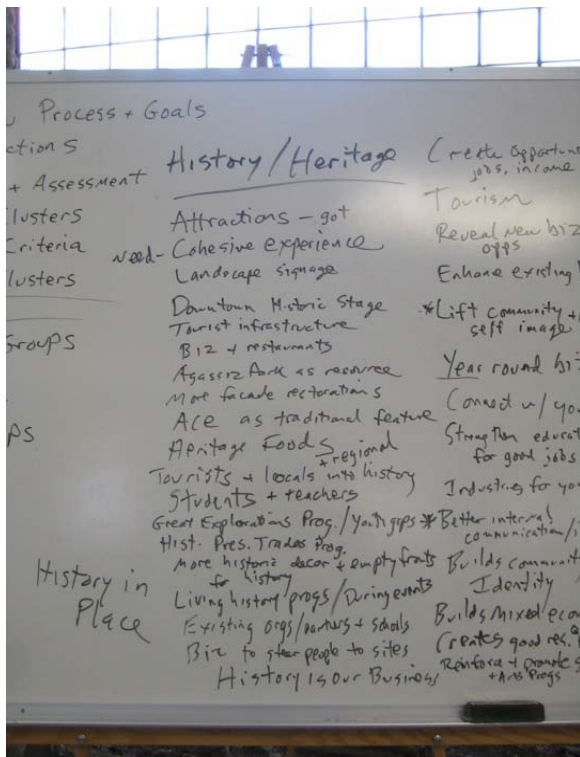 Process + Goals
ctions
+ Assessment
lusters
Criteria
lusters
Groups
ps
History in
Place
History/Heritage
Attractions – got
need- Cohesive experience
Landscape signage
Downtown Historic Stage
Tourist infrastructure
Biz + restaurants
Agassiz Park as resource
More facade restorations
Ace as traditional feature
Heritage Foods
+ regional
Tourists + locals into history
Students + teachers
Great Explorations Prog./Youth grps
Hist. Pres. Trades Prog.
More historic decor + empty fronts
for history
Living history progs/During events
Existing orgs/partners + schools
Biz to steer people to sites
History is our Business
Create opportun
jobs, income
Tourism
Reveal new biz
opps
Enhance existing
*Lift community +
self image
Year round bi
Connect w/ yo
Strengthen educat
for good jobs
Industries for yo
*Better internal
communication/
Builds communit
Identity
Builds mixed eco
Creates good res.
Reinforce + promote
+ Arts Progs